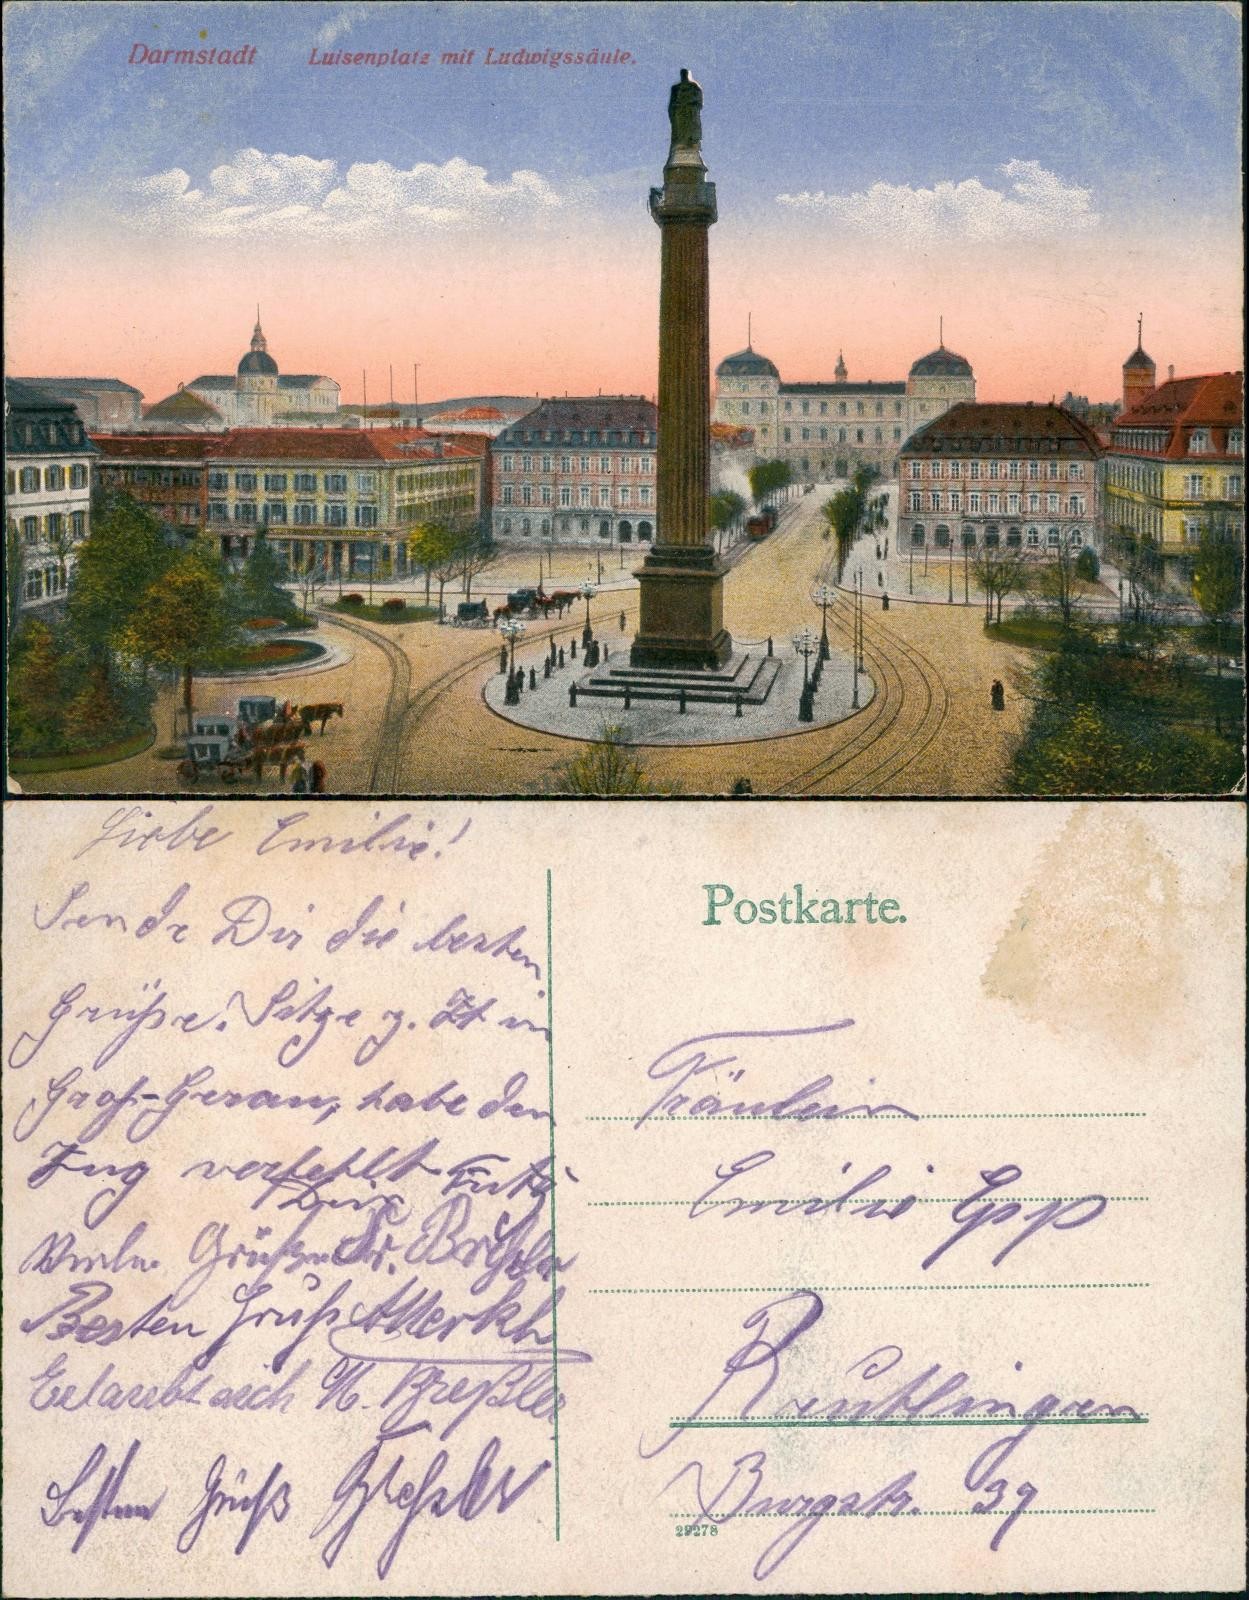 Darmstadt Luisenplatz mit Ludwigssäule.
Liebe Emilie!
Sende Dir die besten
Grüße. Sitze z. Zt in
Groß-Gerau, habe den
Zug verfehlt
Dein Fritz
Viele Grüße Fr.
Besten Gruß
Erlaubt sich M. Breßler
Besten Gruß
Postkarte.
Fräulein
Emilie Epp
Reutlingen
Burgstr. 39
29278